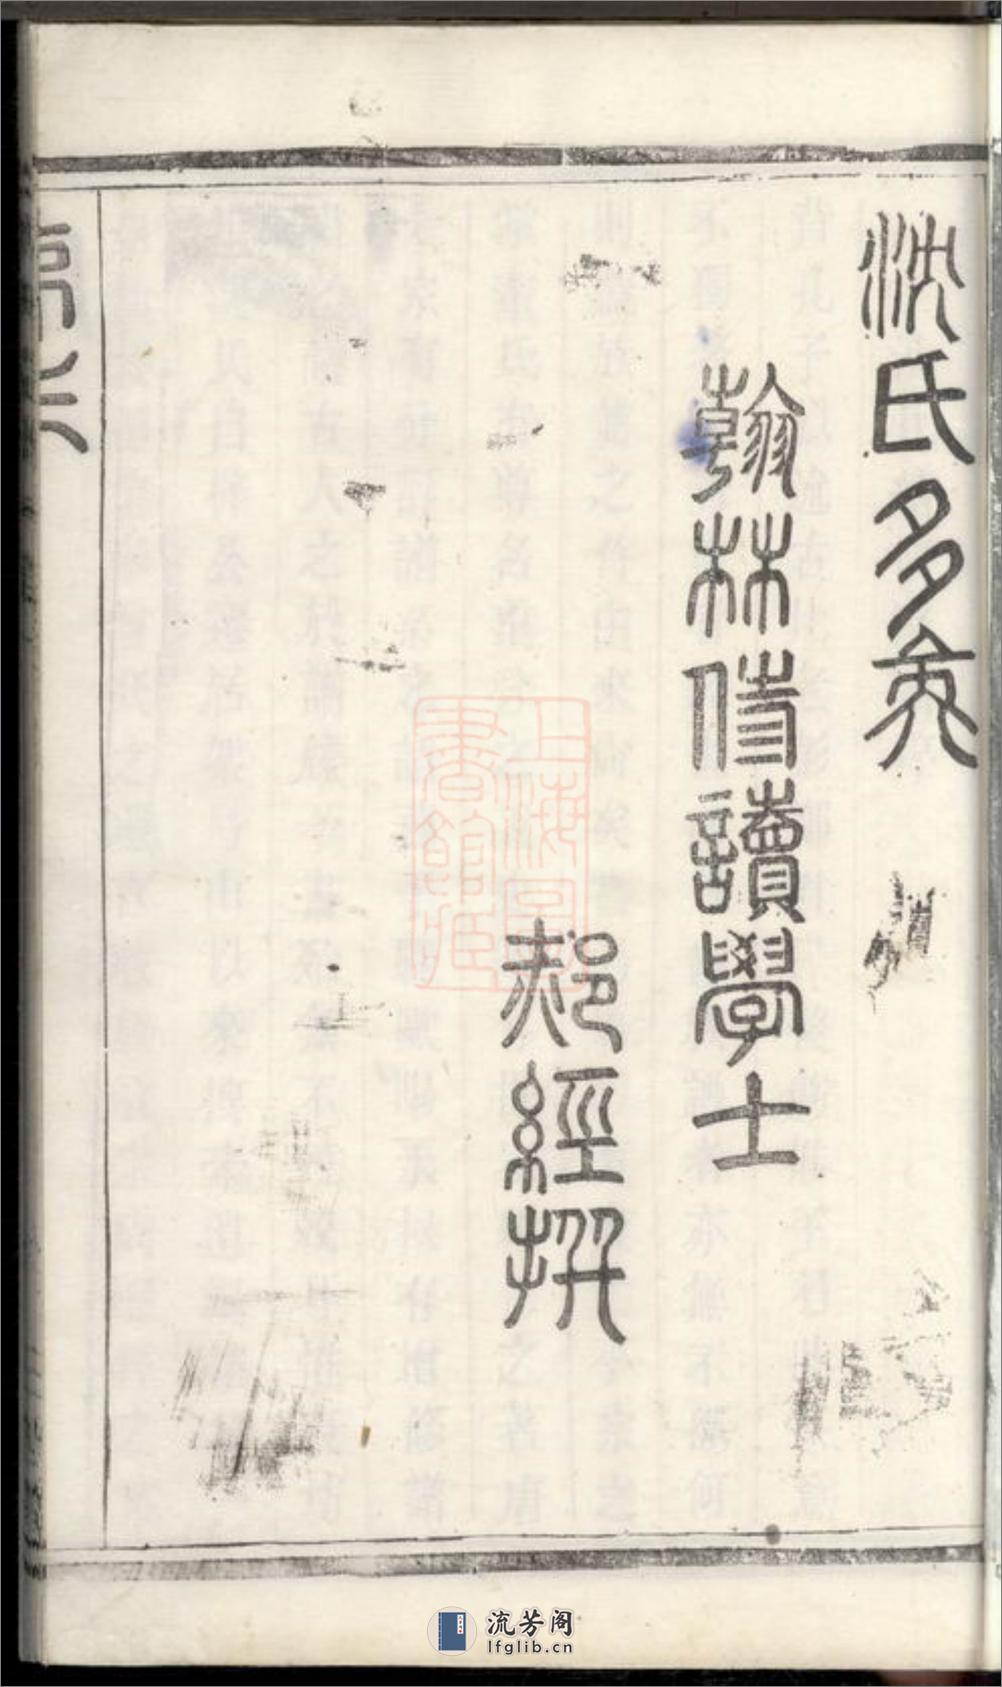 沈氏多
翰林侍讀學士
郝經撰
上海圖
書館藏
流芳阁
lfglib.cn